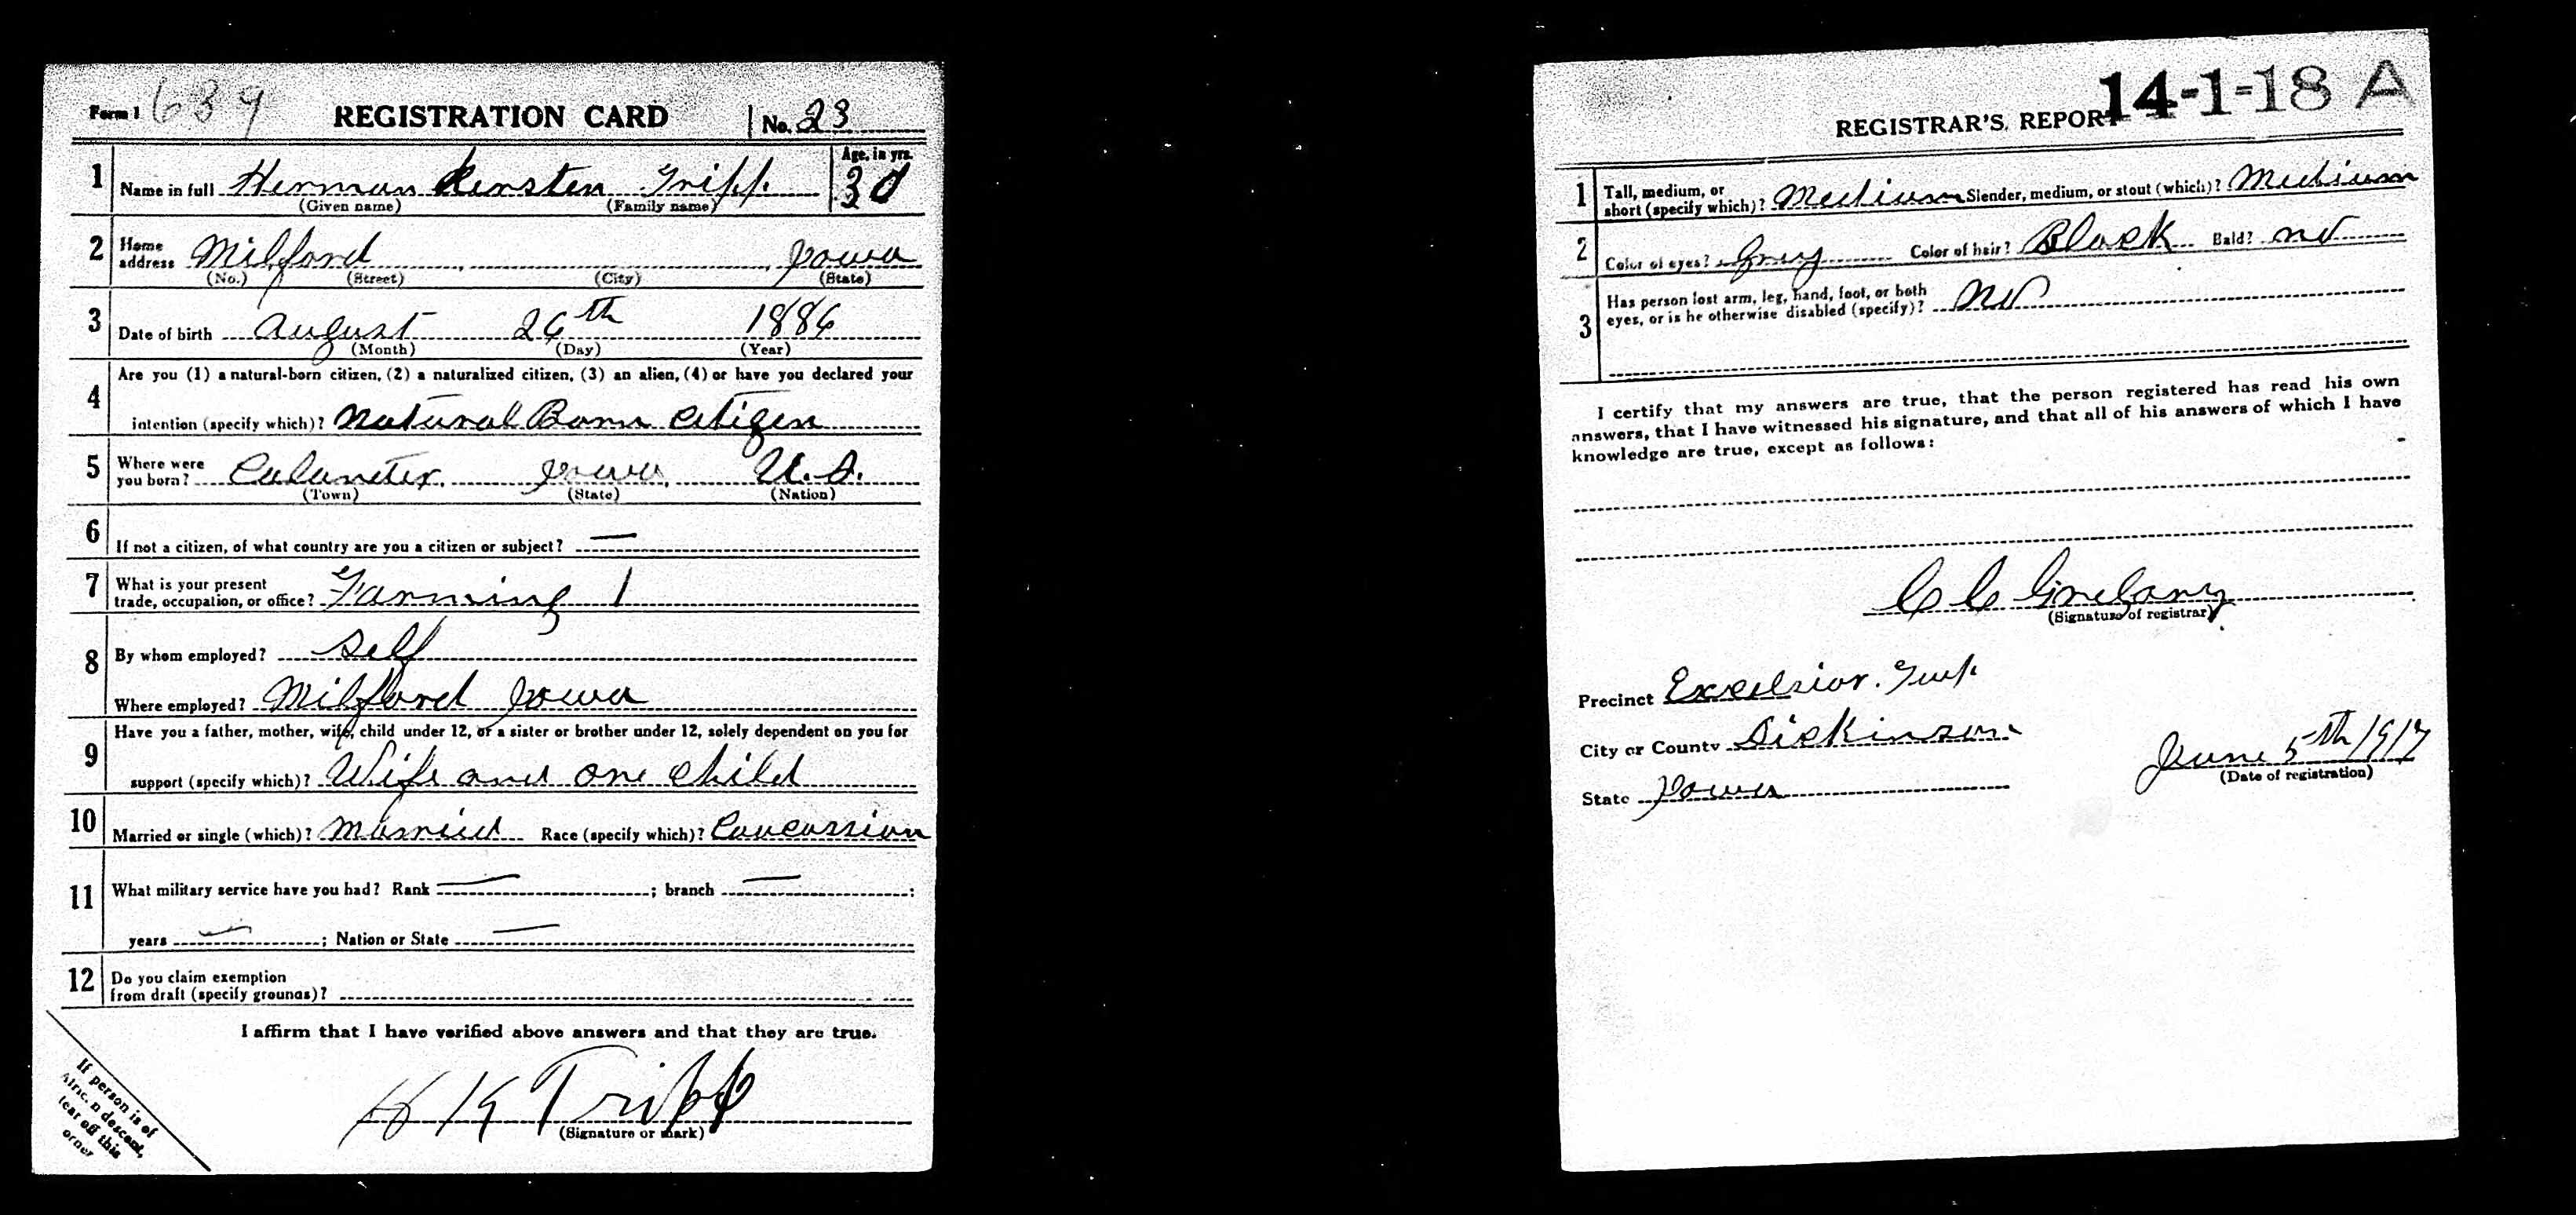 Form 1 639 REGISTRATION CARD No. 23
1 Name in full Herman Kersten Tripp Age, in yrs. 30
(Given name) (Family name)
2 Home address Milford Iowa
(No.) (Street) (City) (State)
3 Date of birth August 26th 1886
(Month) (Day) (Year)
4 Are you (1) a natural-born citizen, (2) a naturalized citizen, (3) an alien, (4) or have you declared your
intention (specify which)? Natural Born Citizen
5 Where were you born? Iowa, U.S.
(Town) (State) (Nation)
6 If not a citizen, of what country are you a citizen or subject? —
7 What is your present
trade, occupation, or office? Farming 1
8 By whom employed? Self
Where employed? Milford Iowa
9 Have you a father, mother, wife, child under 12, or a sister or brother under 12, solely dependent on you for
support (specify which)? Wife and one child
10 Married or single (which)? Married Race (specify which)? Caucassion
11 What military service have you had? Rank — ; branch — ;
years — ; Nation or State —
12 Do you claim exemption
from draft (specify grounds)?
I affirm that I have verified above answers and that they are true.
H K Tripp
(Signature or mark)
If person is of
African descent,
tear off this
corner
14-1-18 A
REGISTRAR'S REPORT
1 Tall, medium, or
short (specify which)? Medium Slender, medium, or stout (which)? Medium
2 Color of eyes? Grey Color of hair? Black Bald? No
3 Has person lost arm, leg, hand, foot, or both
eyes, or is he otherwise disabled (specify)? No
I certify that my answers are true, that the person registered has read his own
answers, that I have witnessed his signature, and that all of his answers of which I have
knowledge are true, except as follows:
C C
(Signature of registrar)
Precinct Excelsior. Twp.
City or County Dickinson
State Iowa
June 5th 1917
(Date of registration)